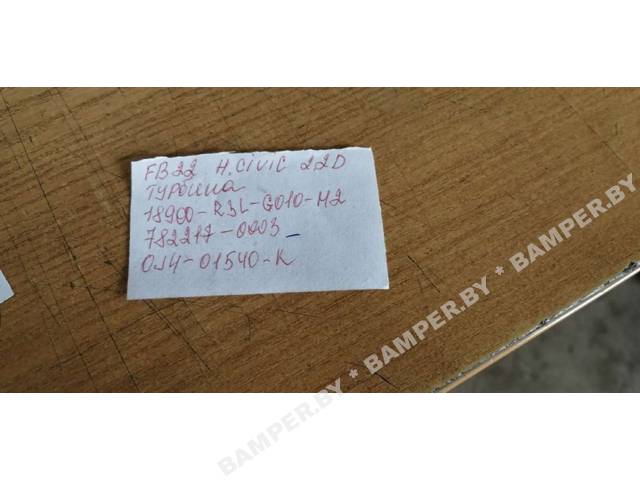 FB22 H.CIVIC 2.2D
ТУРбина
18900-R3L-G010-M2
782217-0003
0J4-01540-K
BAMPER.BY * BAMPER.BY * BAMPER.BY